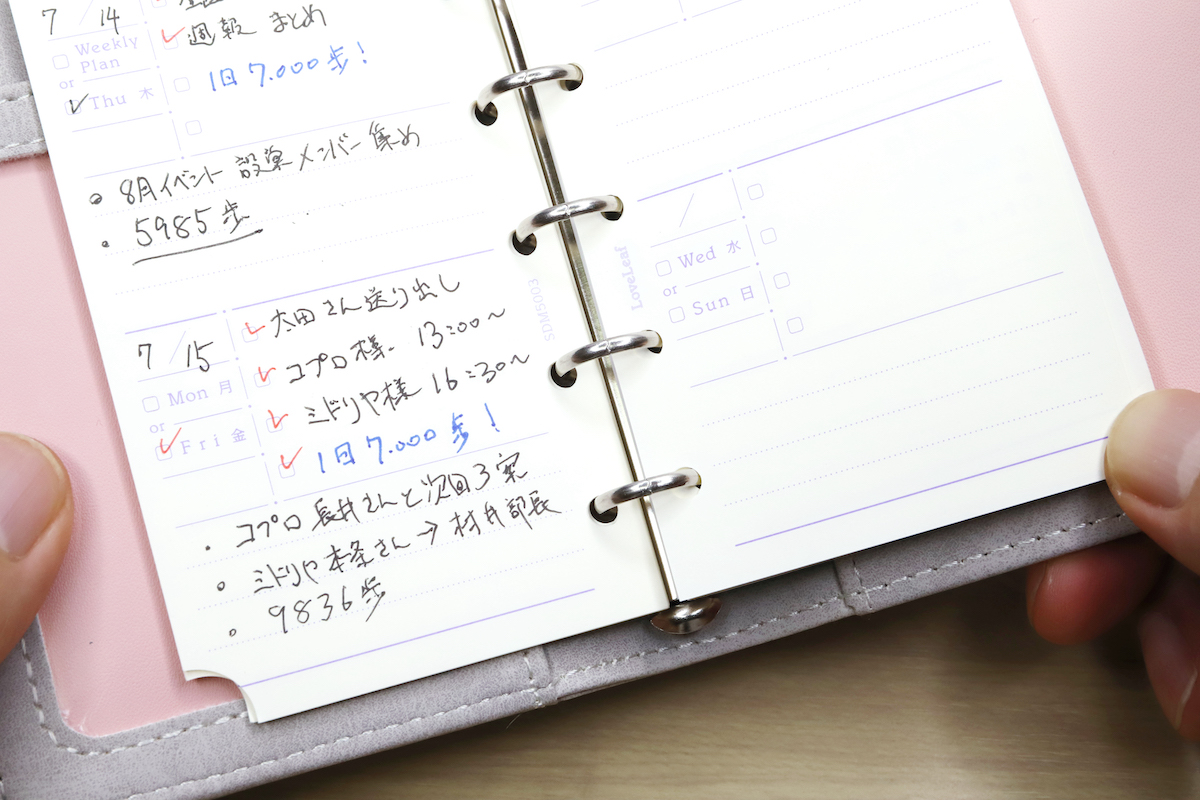 7/14
週報 まとめ
Weekly
Plan
or
Thu 木
1日7.000歩!
8月イベント 設営メンバー集め
5985歩
7/15
太田さん送り出し
コプロ様 13:00〜
Mon 月
or
Fri 金
ミドリヤ様 16:30〜
1日7.000歩!
コプロ 長井さんと次回3案
ミドリヤ本条さん→村井部長
9836歩
SDM5003
LoveLeaf
/
Wed 水
or
Sun 日